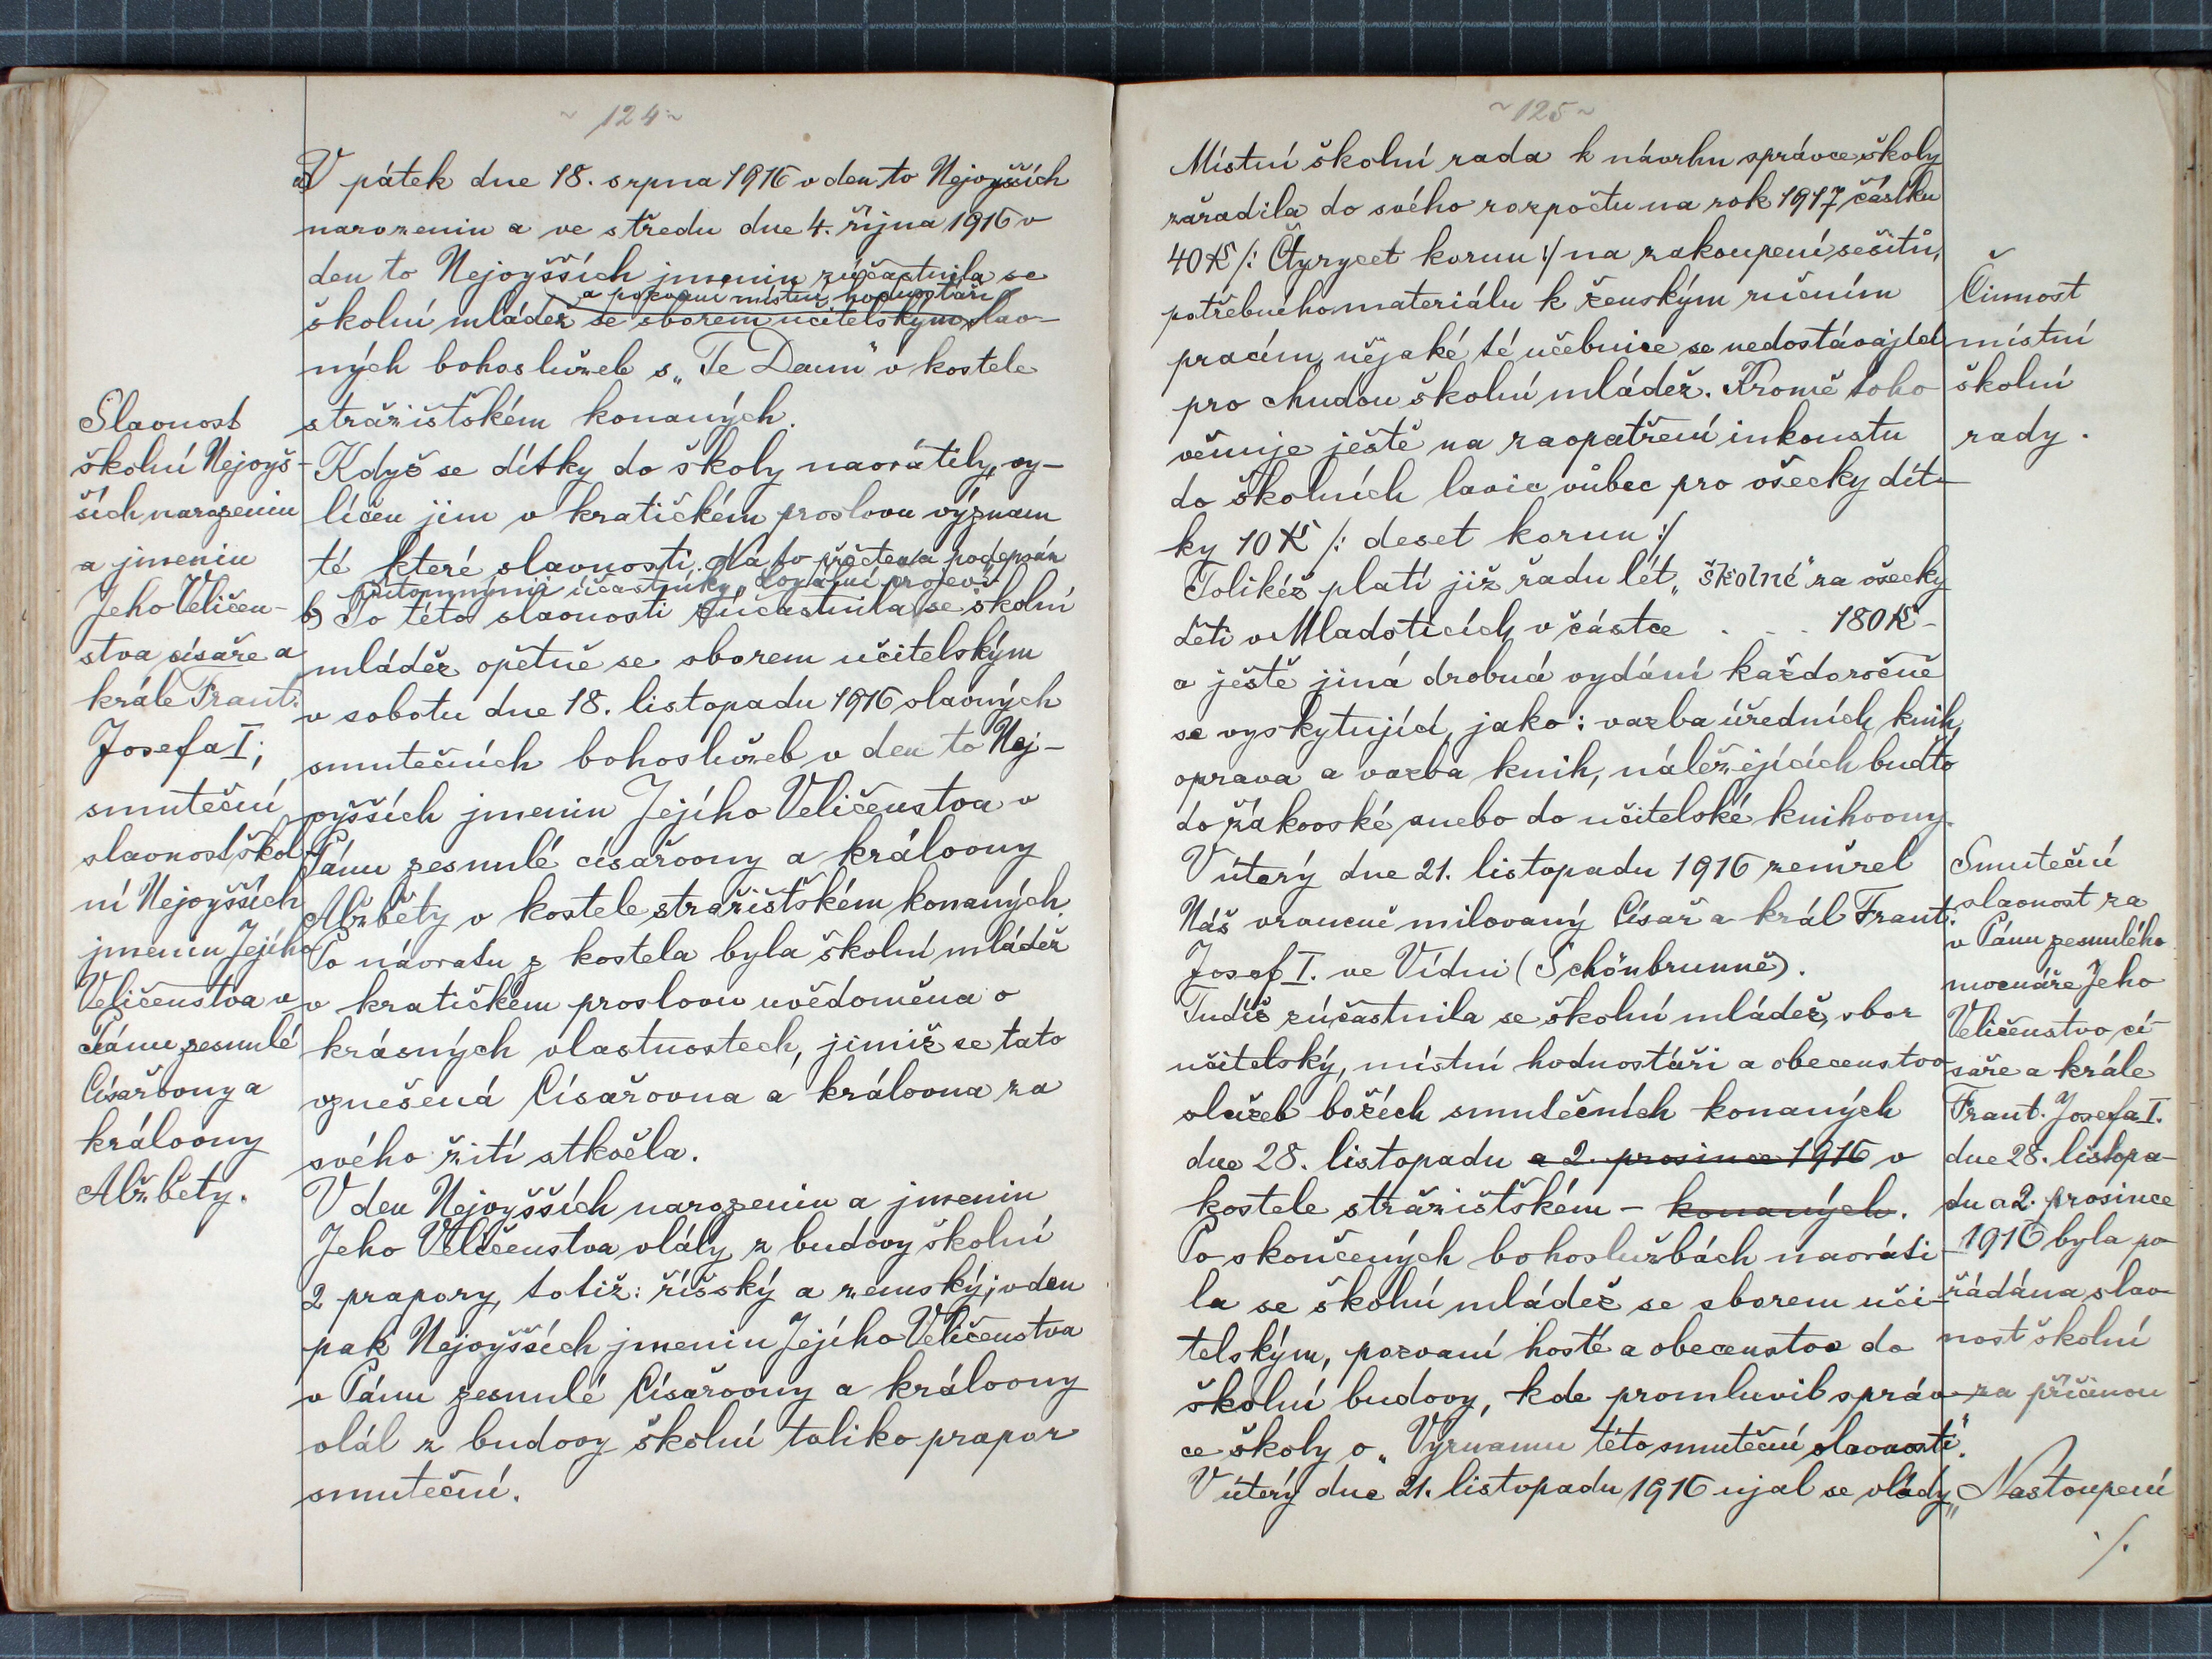 ~ 124 ~
Slavnost
školní Nejvyš-
ších narozenin
a jmenin
Jeho Veličen-
stva císaře a
krále Frant.
Josefa I;
smuteční
slavnost škol-
ní Nejvyšších
jmenin Jejího
Veličenstva v
Pánu zesnulé
Císařovny a
královny
Alžběty.
a) V pátek dne 18. srpna 1916 v den to Nejvyšších
narozenin a ve středu dne 4. října 1916 v
den to Nejvyšších jmenin zúčastnila se
a pozvaní místní hodnostáři
školní mládež se sborem učitelským slav-
ných bohoslužeb s „Te Deum" v kostele
stražišťském konaných.
Když se dítky do školy navrátily, vy-
líčen jim v kratičkém proslovu význam
té které slavnosti. Na to přečten a podepsán
přítomnými účastníky „Loyalní projev".
b) Po této slavnosti zúčastnila se školní
mládež opětně se sborem učitelským
v sobotu dne 18. listopadu 1916 slavných
smutečních bohoslužeb v den to Nej-
vyšších jmenin Jejího Veličenstva v
Pánu zesnulé císařovny a královny
Alžběty v kostele stražišťském konaných.
Po návratu z kostela byla školní mládež
v kratičkém proslovu uvědoměna o
krásných vlastnostech, jimiž se tato
vznešená Císařovna a královna za
svého žití stkvěla.
V den Nejvyšších narozenin a jmenin
Jeho Veličenstva vlály z budovy školní
2 prapory, totiž: říšský a zemský; v den
pak Nejvyšších jmenin Jejího Veličenstva
v Pánu zesnulé Císařovny a královny
vlál z budovy školní toliko prapor
smuteční.
~ 125 ~
Místní školní rada k návrhu správce školy
zařadila do svého rozpočtu na rok 1917 částku
40 K /: Čtyrycet korun :/ na zakoupení sešitů,
potřebného materiálu k ženským ručním
pracím, nějaké té učebnice se nedostávající
pro chudou školní mládež. Kromě toho
věnuje ještě na zaopatření inkoustu
do školních lavic vůbec pro všecky dít-
ky 10 K /: deset korun :/
Tolikéž platí již řadu let „školné" za všecky
děti v Mladoticích v částce . . . 180 K -
a ještě jiná drobná vydání každoročně
se vyskytující, jako: vazba úředních knih,
oprava a vazba knih, náležejících buďto
do žákovské anebo do učitelské knihovny.
V úterý dne 21. listopadu 1916 zemřel
Náš vroucně milovaný Císař a král Frant.
Josef I. ve Vídni (Schönbrunně).
Tudíž zúčastnila se školní mládež, sbor
učitelský, místní hodnostáři a obecenstvo
služeb božích smutečních konaných
dne 28. listopadu a 2. prosince 1916 v
kostele stražišťském - konaných.
Po skončených bohoslužbách navráti-
la se školní mládež se sborem uči-
telským, pozvaní hosté a obecenstvo do
školní budovy, kde promluvil správ-
ce školy o „Významu této smuteční slavnosti".
V úterý dne 21. listopadu 1916 ujal se vlády
Činnost
místní
školní
rady.
Smuteční
slavnost za
v Pánu zesnulého
mocnáře Jeho
Veličenstvo cí-
saře a krále
Frant. Josefa I.
dne 28. listopa-
du a 2. prosince
1916 byla po-
řádána slav-
nost školní
za příčinou
„Nastoupení
./.